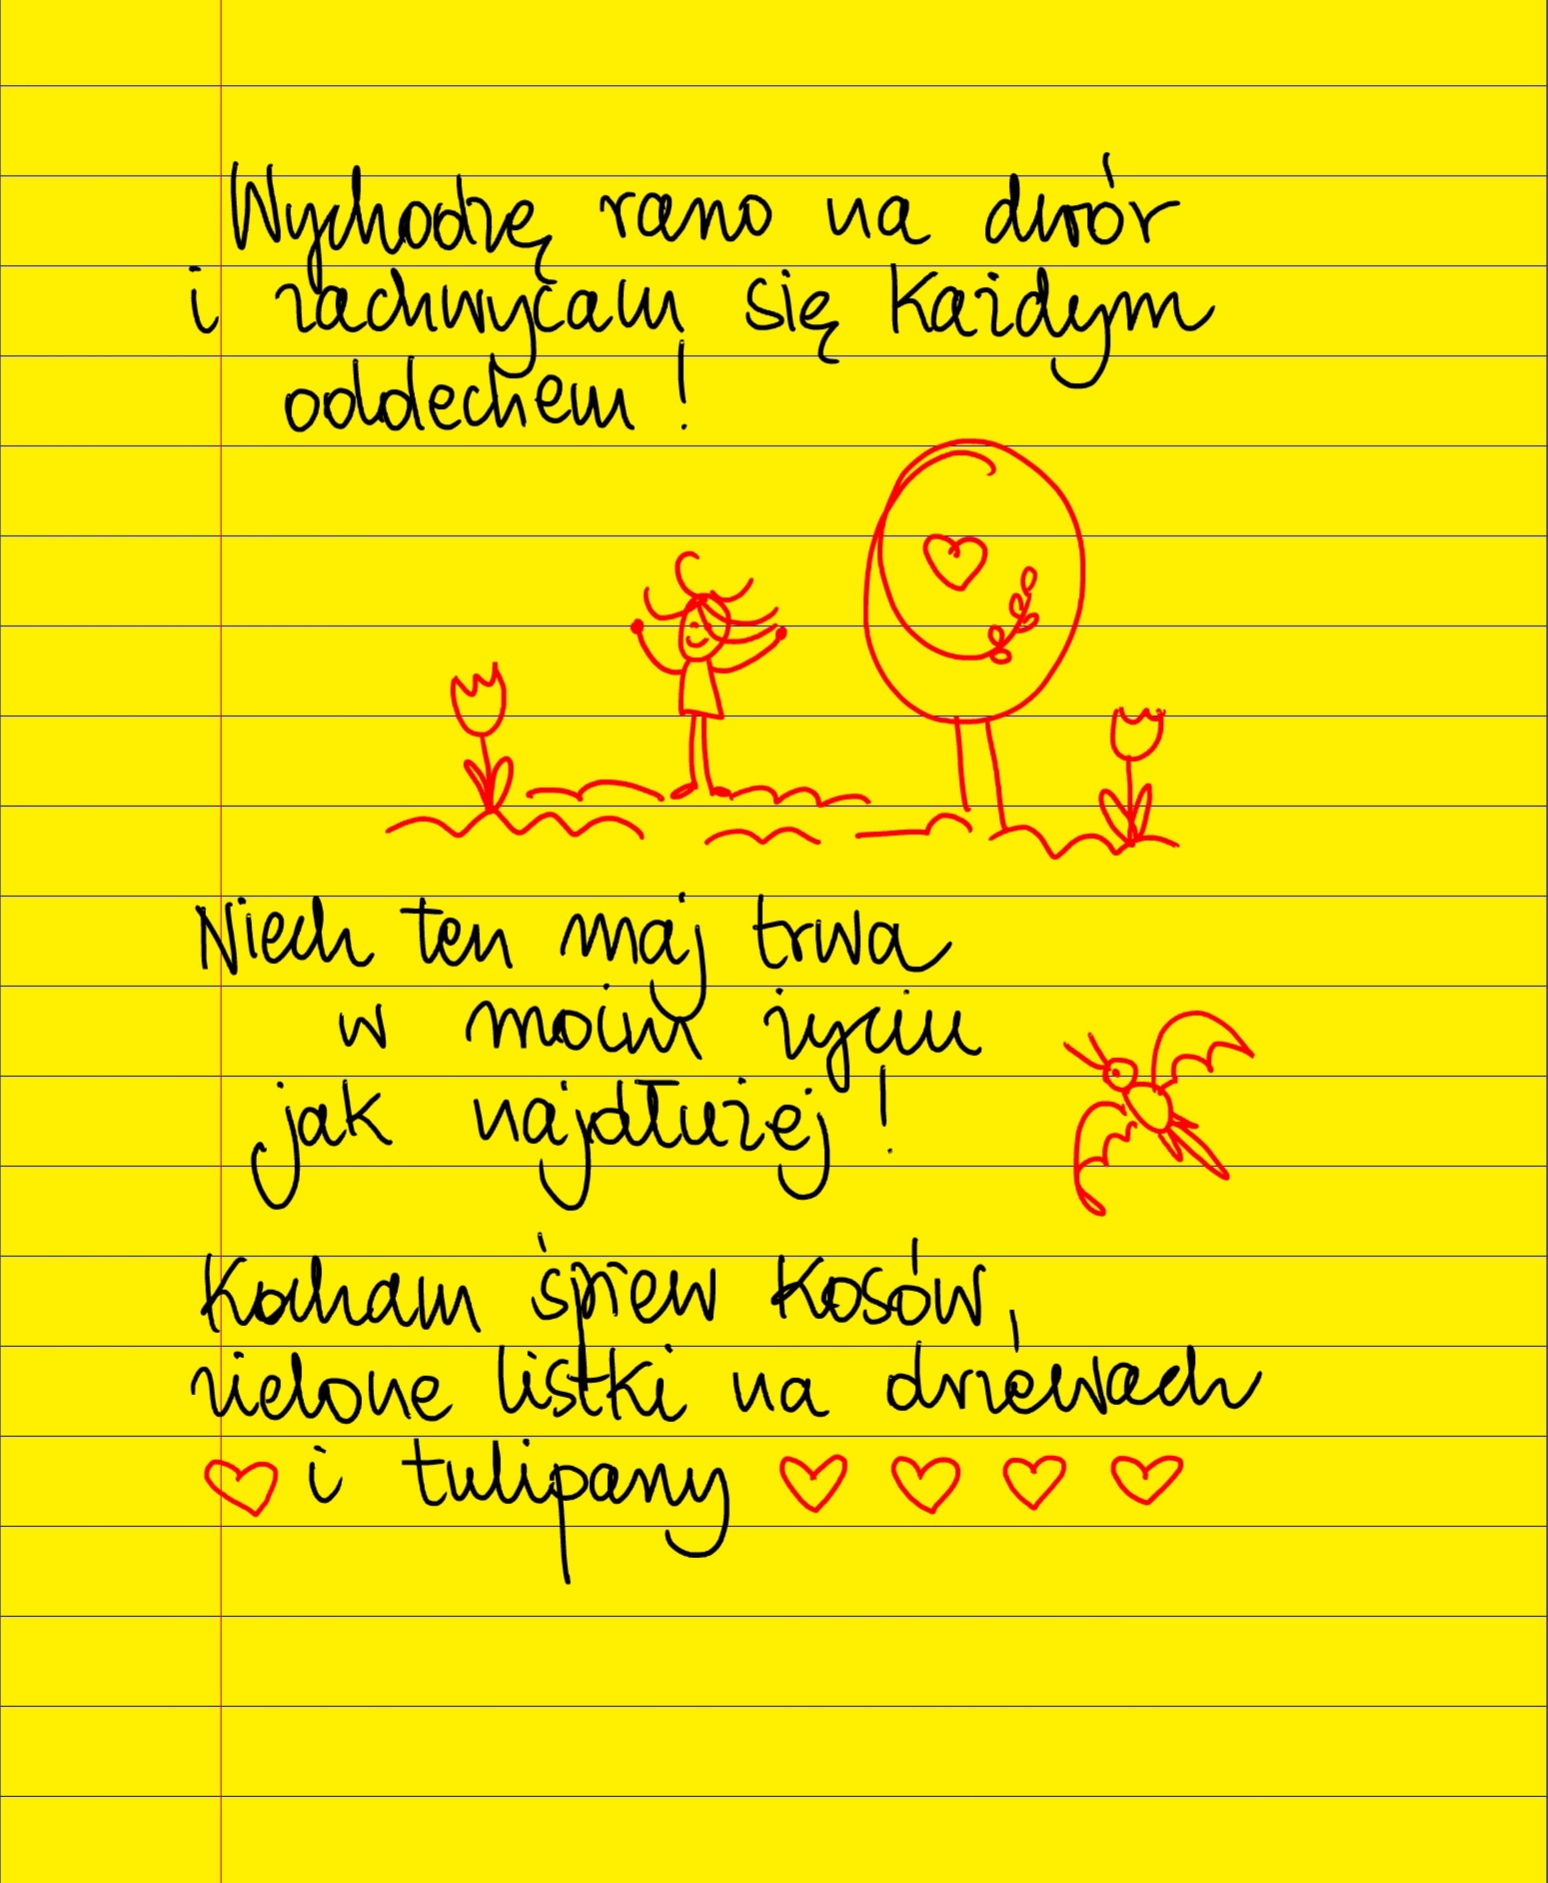 Wychodzę rano na dwór
i zachwycam się każdym
oddechem!
Niech ten maj trwa
w moim życiu
jak najdłużej!
Kocham śpiew kosów,
zielone listki na drzewach
i tulipany